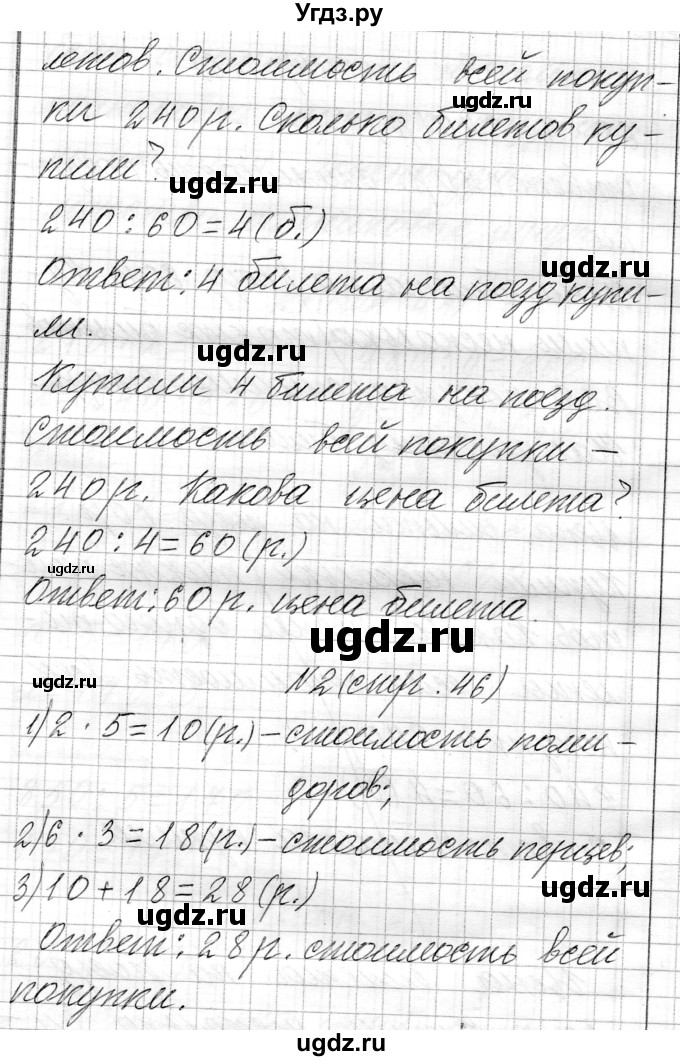 Угдз.ру
летов. Стоимость всей покуп-
ки 240 р. Сколько билетов ку-
пили?
ugdz.ru
ugdz.ru
240 : 60 = 4 (б.)
ugdz.ru
Ответ: 4 билета на поезд купи-
ли.
ugdz.ru
Купили 4 билета на поезд.
Стоимость всей покупки –
240 р. Какова цена билета?
ugdz.ru
240 : 4 = 60 (р.)
ugdz.ru
Ответ: 60 р. цена билета.
ugdz.ru
ugdz.ru
№2 (стр. 46)
1) 2 · 5 = 10 (р.) – стоимость поми-
доров;
ugdz.ru
2) 6 · 3 = 18 (р.) – стоимость перцев;
3) 10 + 18 = 28 (р.)
ugdz.ru
ugdz.ru
Ответ: 28 р. стоимость всей
покупки.
ugdz.ru
ugdz.ru